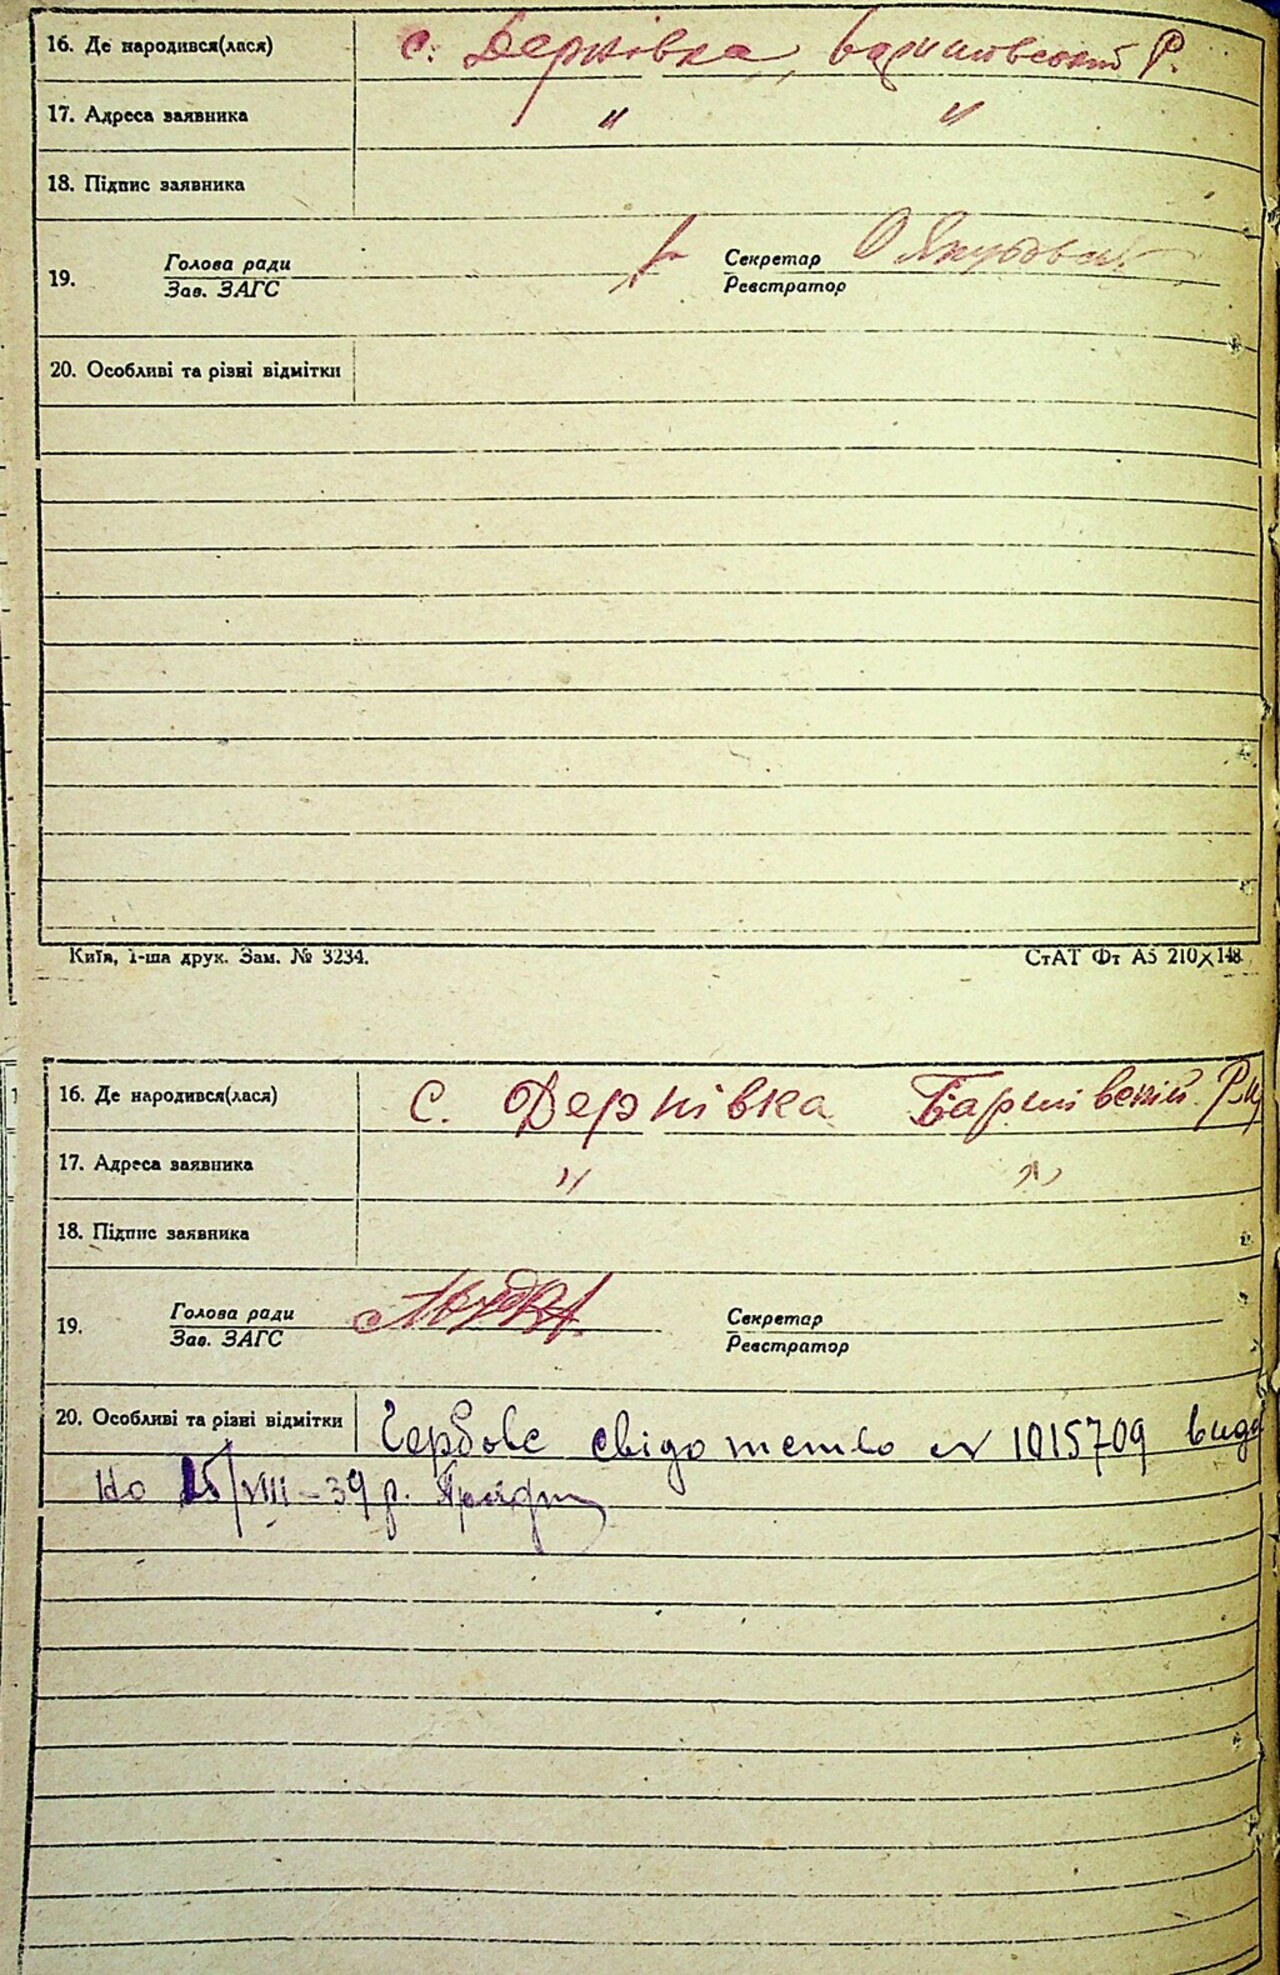 16. Де народився(лася) с. Дернівка, Баришівський Р.
17. Адреса заявника " "
18. Підпис заявника
Голова ради Секретар
19.
Зав. ЗАГС Реєстратор
20. Особливі та різні відмітки
Київ, 1-ша друк. Зам. № 3234. СтАТ Фт А5 210×148
16. Де народився(лася) с. Дернівка Баришівський
17. Адреса заявника " "
18. Підпис заявника
Голова ради Секретар
19.
Зав. ЗАГС Реєстратор
20. Особливі та різні відмітки Гербове свідотство N 1015709 вида
но 15/VIII–39 р.